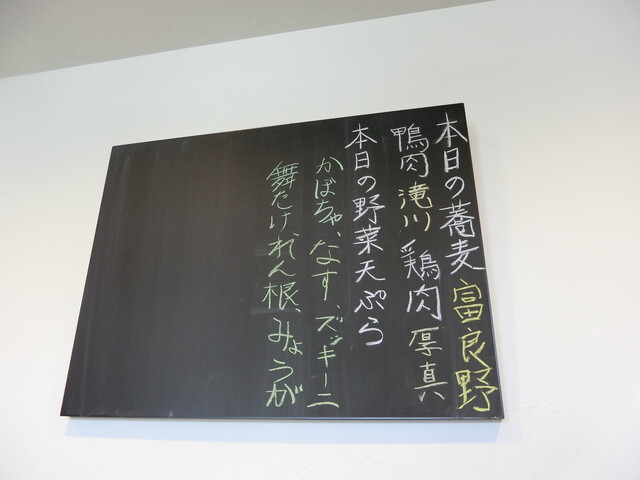 本日の蕎麦 富良野
鴨肉 滝川 鶏肉 厚真
本日の野菜天ぷら
かぼちゃ、なす、ズッキーニ
舞たけ、れん根、みょうが